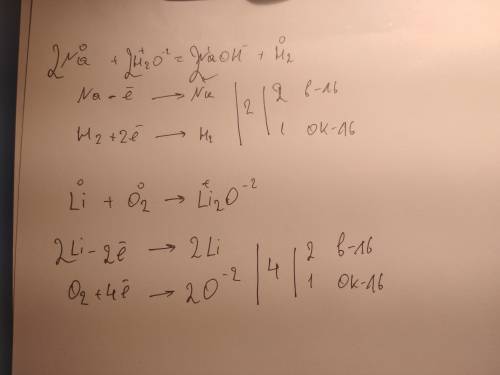 2Na⁰ + 2H₂⁺O⁻² = 2NaOH⁻ + H₂⁰
Na - ē → Na | 2 | 2 в-ль
H₂ + 2ē → H₂ | | 1 ок-ль
Li⁰ + O₂⁰ → Li₂⁺O⁻²
2Li - 2ē → 2Li | 4 | 2 в-ль
O₂ + 4ē → 2O⁻² | | 1 ок-ль